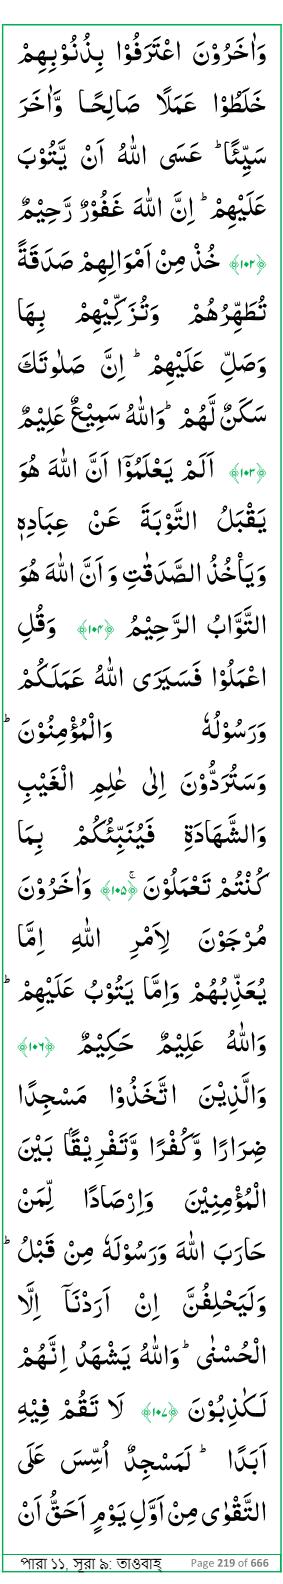 وَاٰخَرُوْنَ اعْتَرَفُوْا بِذُنُوْبِهِمْ
خَلَطُوْا عَمَلًا صَالِحًا وَّاٰخَرَ
سَيِّئًا ؕ عَسَى اللّٰهُ اَنْ يَّتُوْبَ
عَلَيْهِمْ ؕ اِنَّ اللّٰهَ غَفُوْرٌ رَّحِيْمٌ
﴿۱۰۲﴾ خُذْ مِنْ اَمْوَالِهِمْ صَدَقَةً
تُطَهِّرُهُمْ وَتُزَكِّيْهِمْ بِهَا
وَصَلِّ عَلَيْهِمْ ؕ اِنَّ صَلٰوتَكَ
سَكَنٌ لَّهُمْ ؕ وَاللّٰهُ سَمِيْعٌ عَلِيْمٌ
﴿۱۰۳﴾ اَلَمْ يَعْلَمُوْۤا اَنَّ اللّٰهَ هُوَ
يَقْبَلُ التَّوْبَةَ عَنْ عِبَادِهٖ
وَيَاْخُذُ الصَّدَقٰتِ وَ اَنَّ اللّٰهَ هُوَ
التَّوَّابُ الرَّحِيْمُ ﴿۱۰۴﴾ وَقُلِ
اعْمَلُوْا فَسَيَرَى اللّٰهُ عَمَلَكُمْ
وَرَسُوْلُهٗ وَالْمُؤْمِنُوْنَ ؕ
وَسَتُرَدُّوْنَ اِلٰى عٰلِمِ الْغَيْبِ
وَالشَّهَادَةِ فَيُنَبِّئُكُمْ بِمَا
كُنْتُمْ تَعْمَلُوْنَ ۚ﴿۱۰۵﴾ وَاٰخَرُوْنَ
مُرْجَوْنَ لِاَمْرِ اللّٰهِ اِمَّا
يُعَذِّبُهُمْ وَاِمَّا يَتُوْبُ عَلَيْهِمْ ؕ
وَاللّٰهُ عَلِيْمٌ حَكِيْمٌ ﴿۱۰۶﴾
وَالَّذِيْنَ اتَّخَذُوْا مَسْجِدًا
ضِرَارًا وَّكُفْرًا وَّتَفْرِيْقًۢا بَيْنَ
الْمُؤْمِنِيْنَ وَاِرْصَادًا لِّمَنْ
حَارَبَ اللّٰهَ وَرَسُوْلَهٗ مِنْ قَبْلُ ؕ
وَلَيَحْلِفُنَّ اِنْ اَرَدْنَاۤ اِلَّا
الْحُسْنٰى ؕ وَاللّٰهُ يَشْهَدُ اِنَّهُمْ
لَكٰذِبُوْنَ ﴿۱۰۷﴾ لَا تَقُمْ فِيْهِ
اَبَدًا ؕ لَمَسْجِدٌ اُسِّسَ عَلَى
التَّقْوٰى مِنْ اَوَّلِ يَوْمٍ اَحَقُّ اَنْ
পারা ১১, সূরা ৯: তাওবাহ্ Page 219 of 666